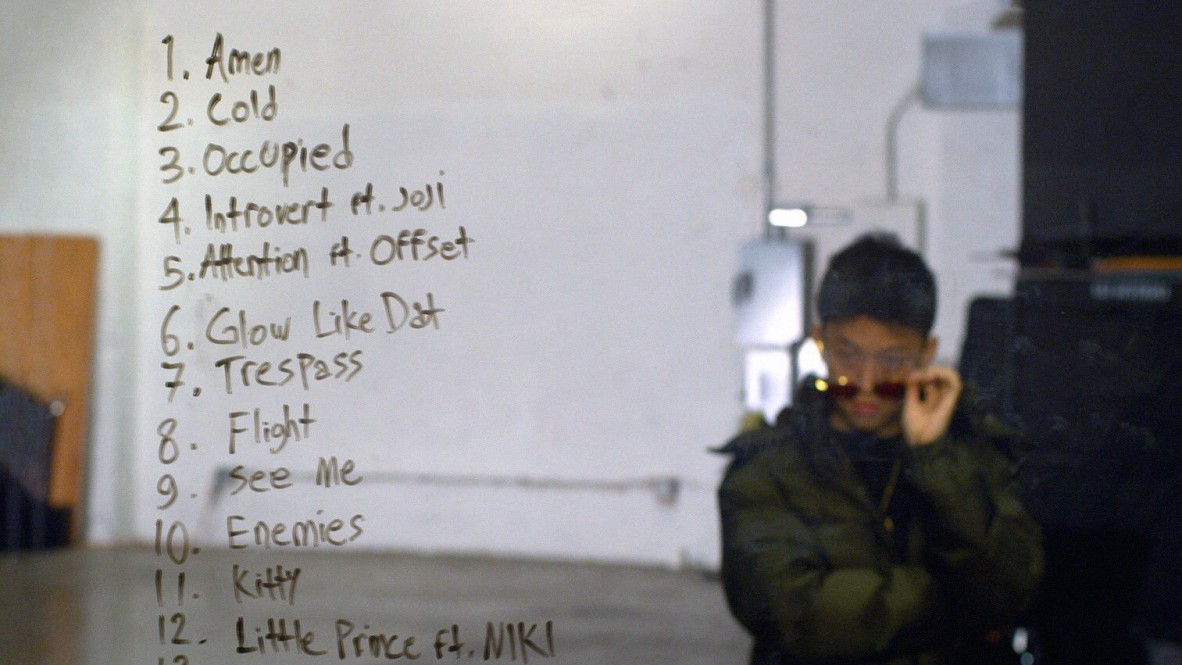 1. Amen
2. Cold
3. Occupied
4. Introvert ft. Joji
5. Attention ft. Offset
6. Glow Like Dat
7. Trespass
8. Flight
9. See Me
10. Enemies
11. Kitty
12. Little Prince ft. NIKI